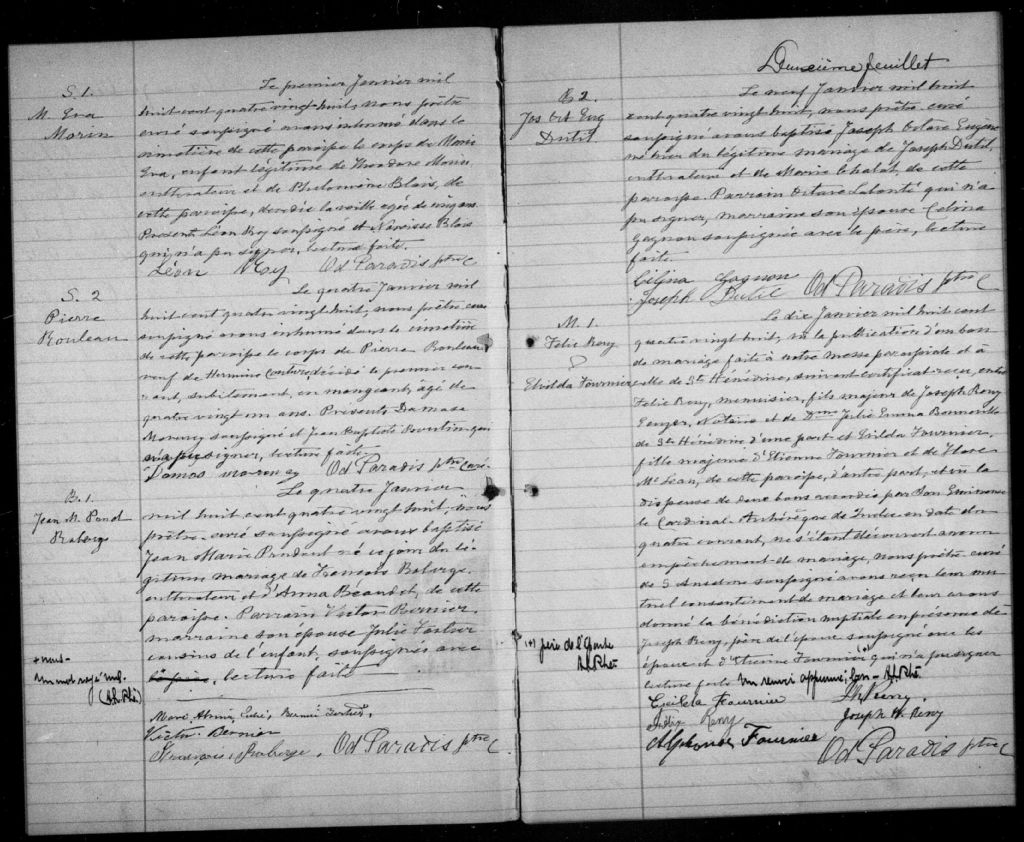 S. 1.
M. Eva
Morin
Le premier Janvier mil
huit cent quatre vingt huit, nous prêtre
curé soussigné avons inhumé dans le
cimetière de cette paroisse le corps de Marie
Eva, enfant légitime de Théodore Morin,
cultivateur et de Philomène Blais, de
cette paroisse, décédée la veille agée de cinq ans.
Présents Léon Roy soussigné et Narcisse Blais
qui n'a pu signer, lecture faite.
Léon Roy Od Paradis ptre C
S. 2
Pierre
Rouleau
Le quatre Janvier mil
huit cent quatre vingt huit, nous prêtre curé
soussigné avons inhumé dans le cimetière
de cette paroisse le corps de Pierre Rouleau
veuf de Hermine Couture, décédé le premier cou-
rant, subitement, en mangeant, âgé de
quatre vingt un ans. Présents Damase
soussigné et Jean Baptiste qui
n'a pu signer, lecture faite.
Damas Od Paradis ptre Curé
B. 1.
Jean M. Prud
Roberge
Le quatre Janvier
mil huit cent quatre vingt huit, nous
prêtre curé soussigné avons baptisé
Jean Marie Prudent né ce jour du lé-
gitime mariage de François Roberge
cultivateur et d'Anna Béaudet, de cette
paroisse. Parrain Victor Bernier
marraine son épouse Julie Fortier
cousins de l'enfant soussignés avec
lecture faite
+ nous
Un mot rayé nul.
Victor Bernier
François Roberge. Od Paradis ptre C
Deuxième feuillet
B 2.
Jos Oct Eug
Dutil
Le neuf Janvier mil huit
cent quatre vingt huit, nous prêtre curé
soussigné avons baptisé Joseph Octave Eugène
né hier du légitime mariage de Joseph Dutil,
cultivateur et de Marie Chabot, de cette
paroisse. Parrain Octave Labonté qui n'a
pu signer, marraine son épouse Célina
Gagnon soussignée avec le père, lecture
faite.
Célina Gagnon
Joseph Dutil Od Paradis ptre C
M. 1.
Félix Remy
&
Exilda Fournier
Le dix Janvier mil huit cent
quatre vingt huit, vu la publication d'un ban
de mariage faite à notre messe paroissiale et à
celle de Ste Hénédine, suivant certificat reçu, entre
Félix Remy, menuisier, fils majeur de Joseph Remy
Ecuyer, Notaire et de Dme Julie Emma Bonneville
de Ste Hénédine d'une part et Exilda Fournier,
fille majeure d'Etienne Fournier et de Flore
Mc Lean, de cette paroisse, d'autre part, et vu la
dispense de deux bans accordée par Son Eminence
le Cardinal Archevêque de Québec en date du
quatre courant, ne s'étant découvert aucun
empêchement de mariage, nous prêtre curé
de S Anselme soussigné avons reçu leur mu-
tuel consentement de mariage et leur avons
donné la bénédiction nuptiale en présence de
Joseph Remy, père de l'époux soussigné avec les
époux et d'Etienne Fournier (+) qui n'a pu signer
lecture faite Un renvoi approuvé; bon
(+) père de l'épouse
Exilda Fournier
Félix Remy Joseph H. Remy
Alphonse Fournier
Od Paradis ptre C